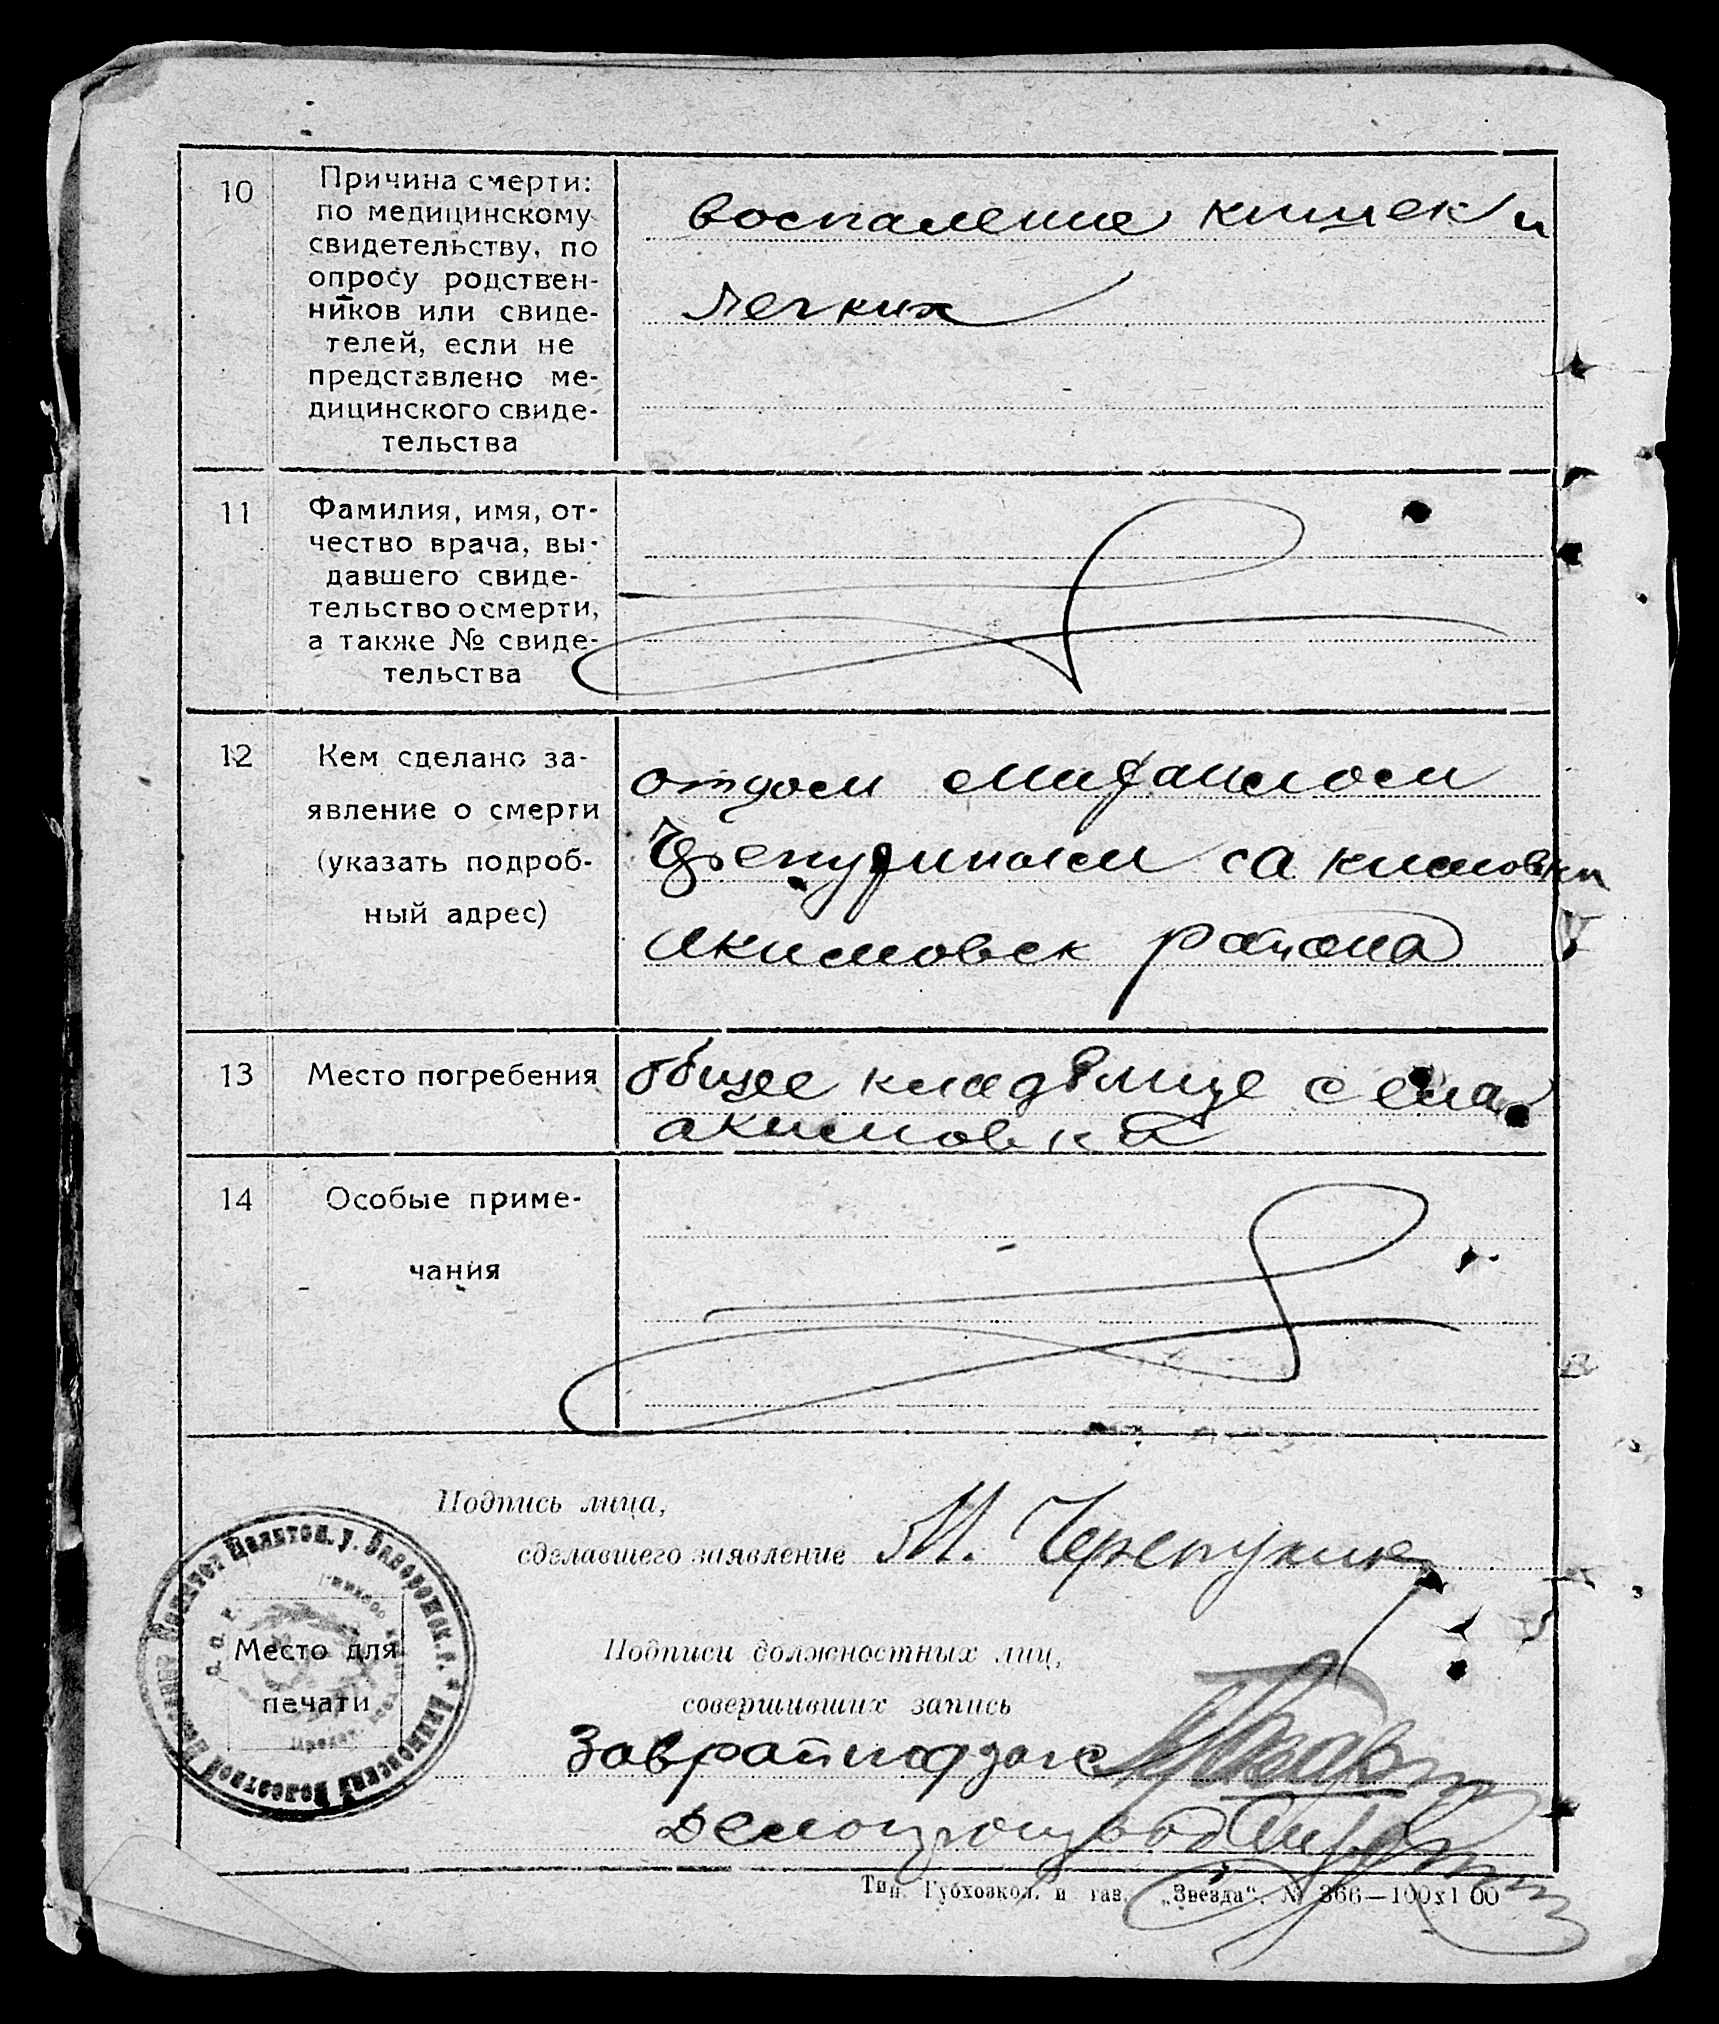 10
Причина смерти:
по медицинскому
свидетельству, по
опросу родствен-
ников или свиде-
телей, если не
представлено ме-
дицинского свиде-
тельства
воспаление кишек и
легких
11
Фамилия, имя, от-
чество врача, вы-
давшего свиде-
тельство о смерти,
а также № свиде-
тельства
12
Кем сделано за-
явление о смерти
(указать подроб-
ный адрес)
отцом Михаилом
с Акимовки
Акимовск района
13
Место погребения
общее кладбище села
Акимовка
14
Особые приме-
чания
Подпись лица,
сделавшего заявление М. Черепухин
Место для
печати
Подписи должностных лиц,
совершивших запись
Заврайподзагс
Делопроизвод
Тип. Губхозкол. и газ. „Звезда“. № 366—100х1 00